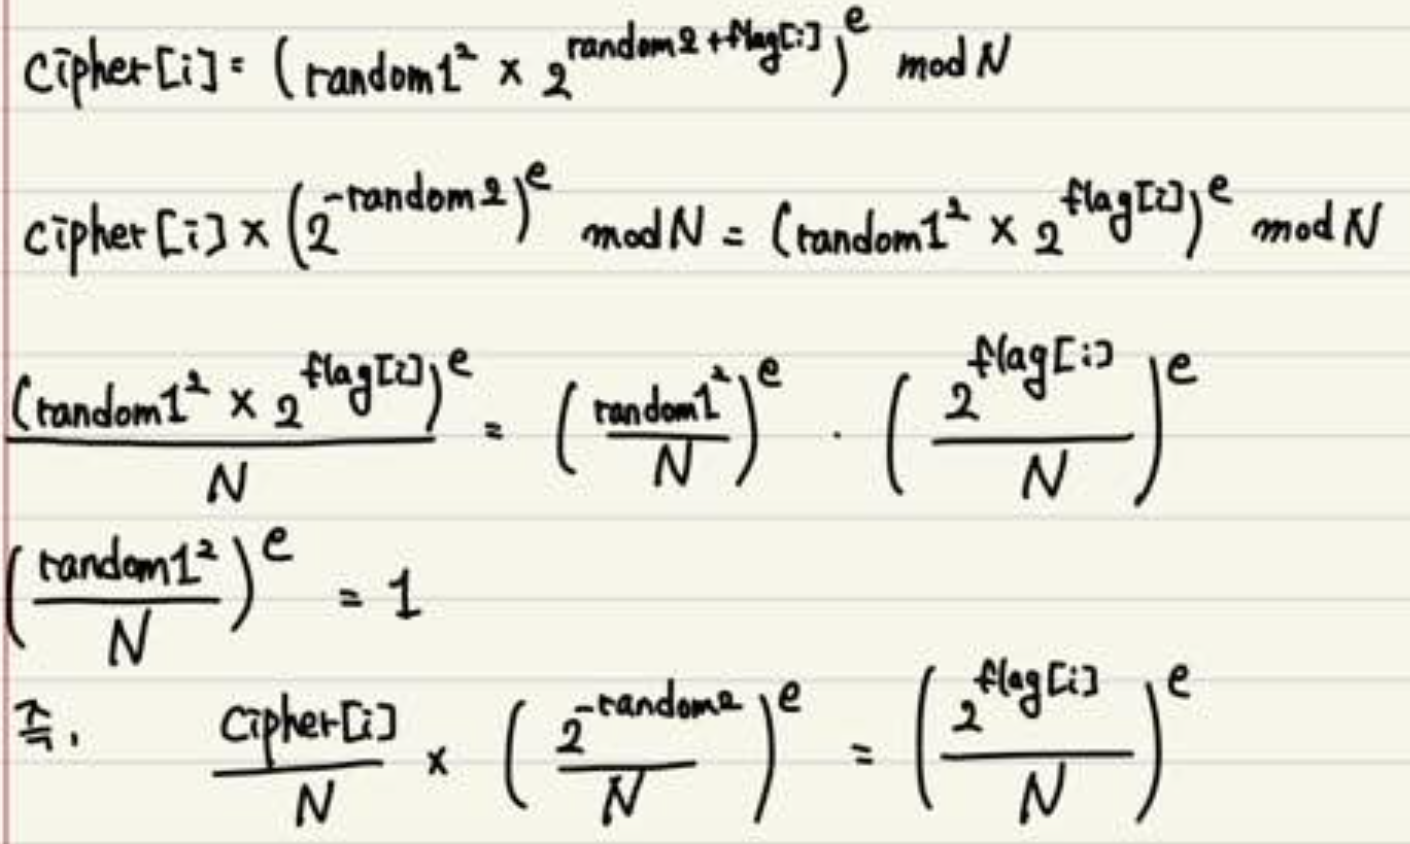 cipher[i] = (random1² × 2^(random2+flag[i]))^e mod N
cipher[i] × (2^(-random2))^e mod N = (random1² × 2^(flag[i]))^e mod N
(random1² × 2^(flag[i]))^e / N = (random1² / N)^e · (2^(flag[i]) / N)^e
(random1² / N)^e = 1
즉, cipher[i] / N × (2^(-random2) / N)^e = (2^(flag[i]) / N)^e